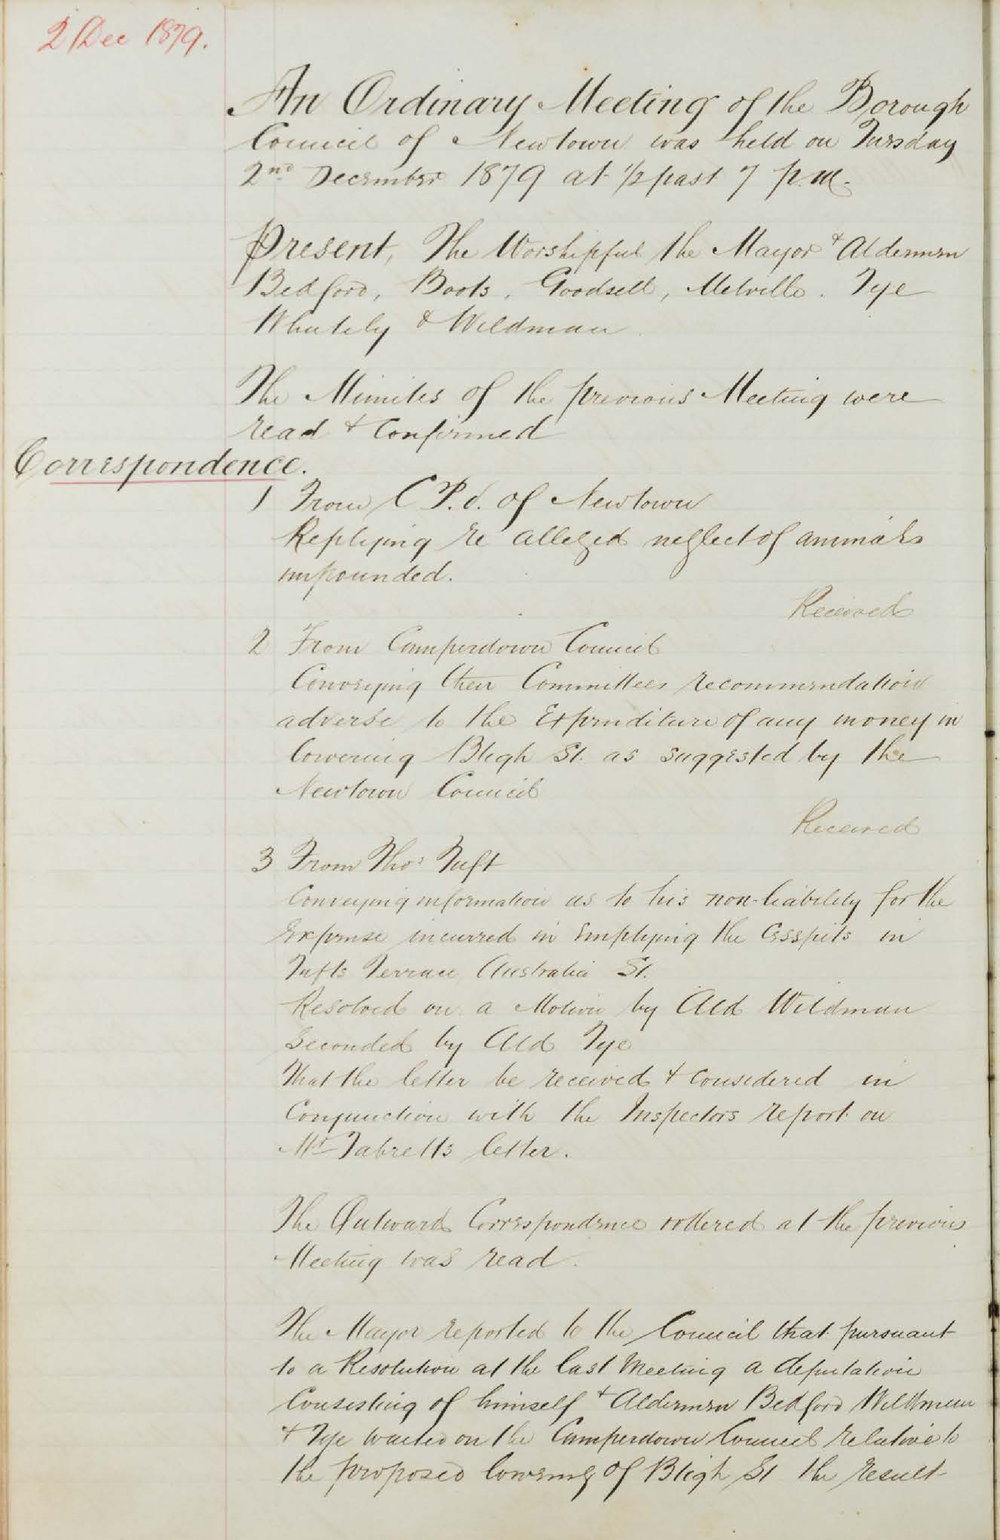 2 Dec 1879.
An Ordinary Meeting of the Borough
Council of Newtown was held on Tuesday
2nd December 1879 at ½ past 7 p.m.
Present, The Worshipful the Mayor & Aldermen
Bedford, Boots, Goodsell, Melville. Tye
Whately & Wildman
The Minutes of the previous Meeting were
read & Confirmed
Correspondence.
1 From C.P.S. of Newtown
Replying re alleged neglect of animals
impounded.
Received
2 From Camperdown Council
Conveying their Committees recommendation
adverse to the Expenditure of any money in
lowering Bligh St. as suggested by the
Newtown Council
Received
3 From Thos Tuft
Conveying information as to his non-liability for the
Expense incurred in Emptying the Cesspits in
Tufts Terrace Australia St.
Resolved on a Motion by Ald Wildman
Seconded by Ald Tye
That the letter be received & Considered in
Conjunction with the Inspectors report on
Mr Tabretts letter.
The Outward Correspondence ordered at the previous
Meeting was read.
The Mayor reported to the Council that pursuant
to a Resolution at the last Meeting a deputation
Consisting of himself & Aldermen Bedford Wildman
& Tye waited on the Camperdown Council relative to
the proposed lowering of Bligh St the result